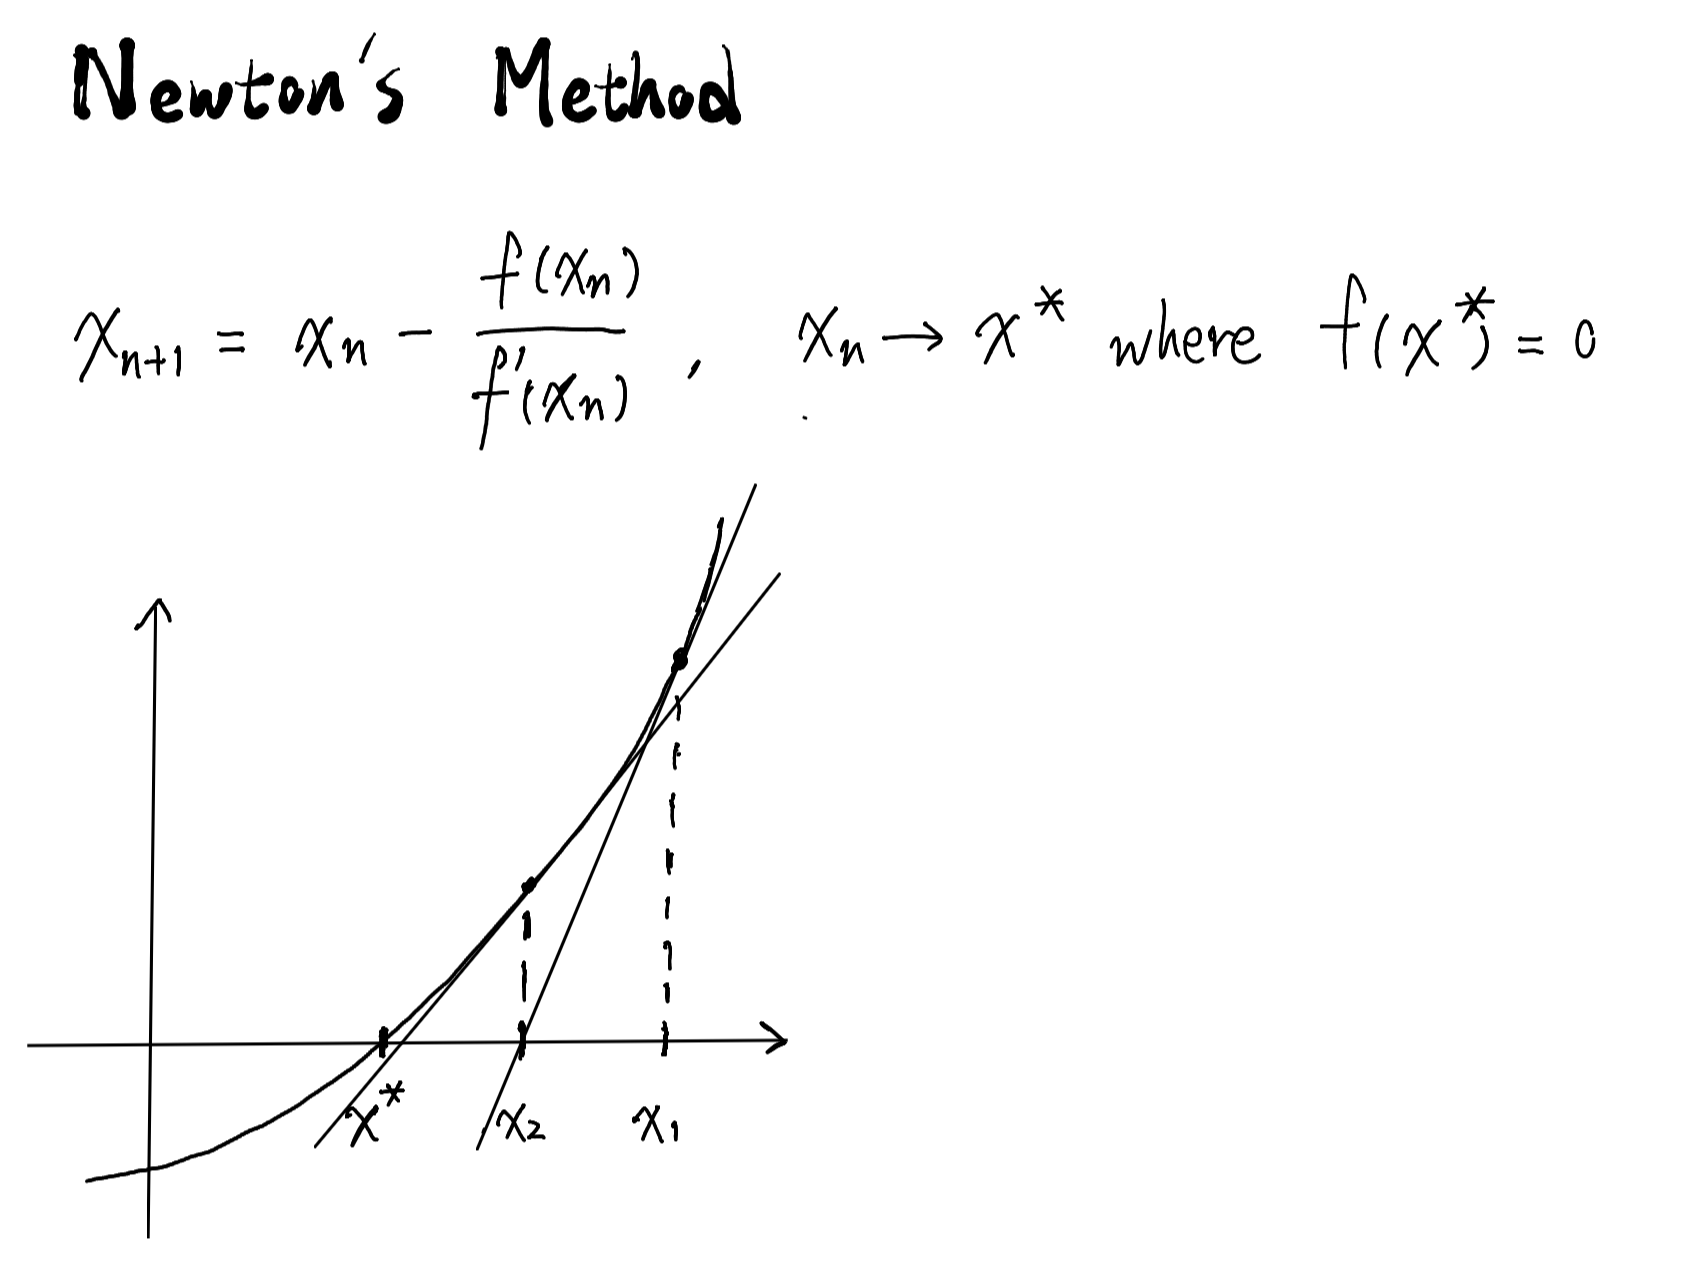 Newton's Method
xₙ₊₁ = xₙ − f(xₙ)/f'(xₙ) , xₙ → x* where f(x*) = 0
x* x₂ x₁